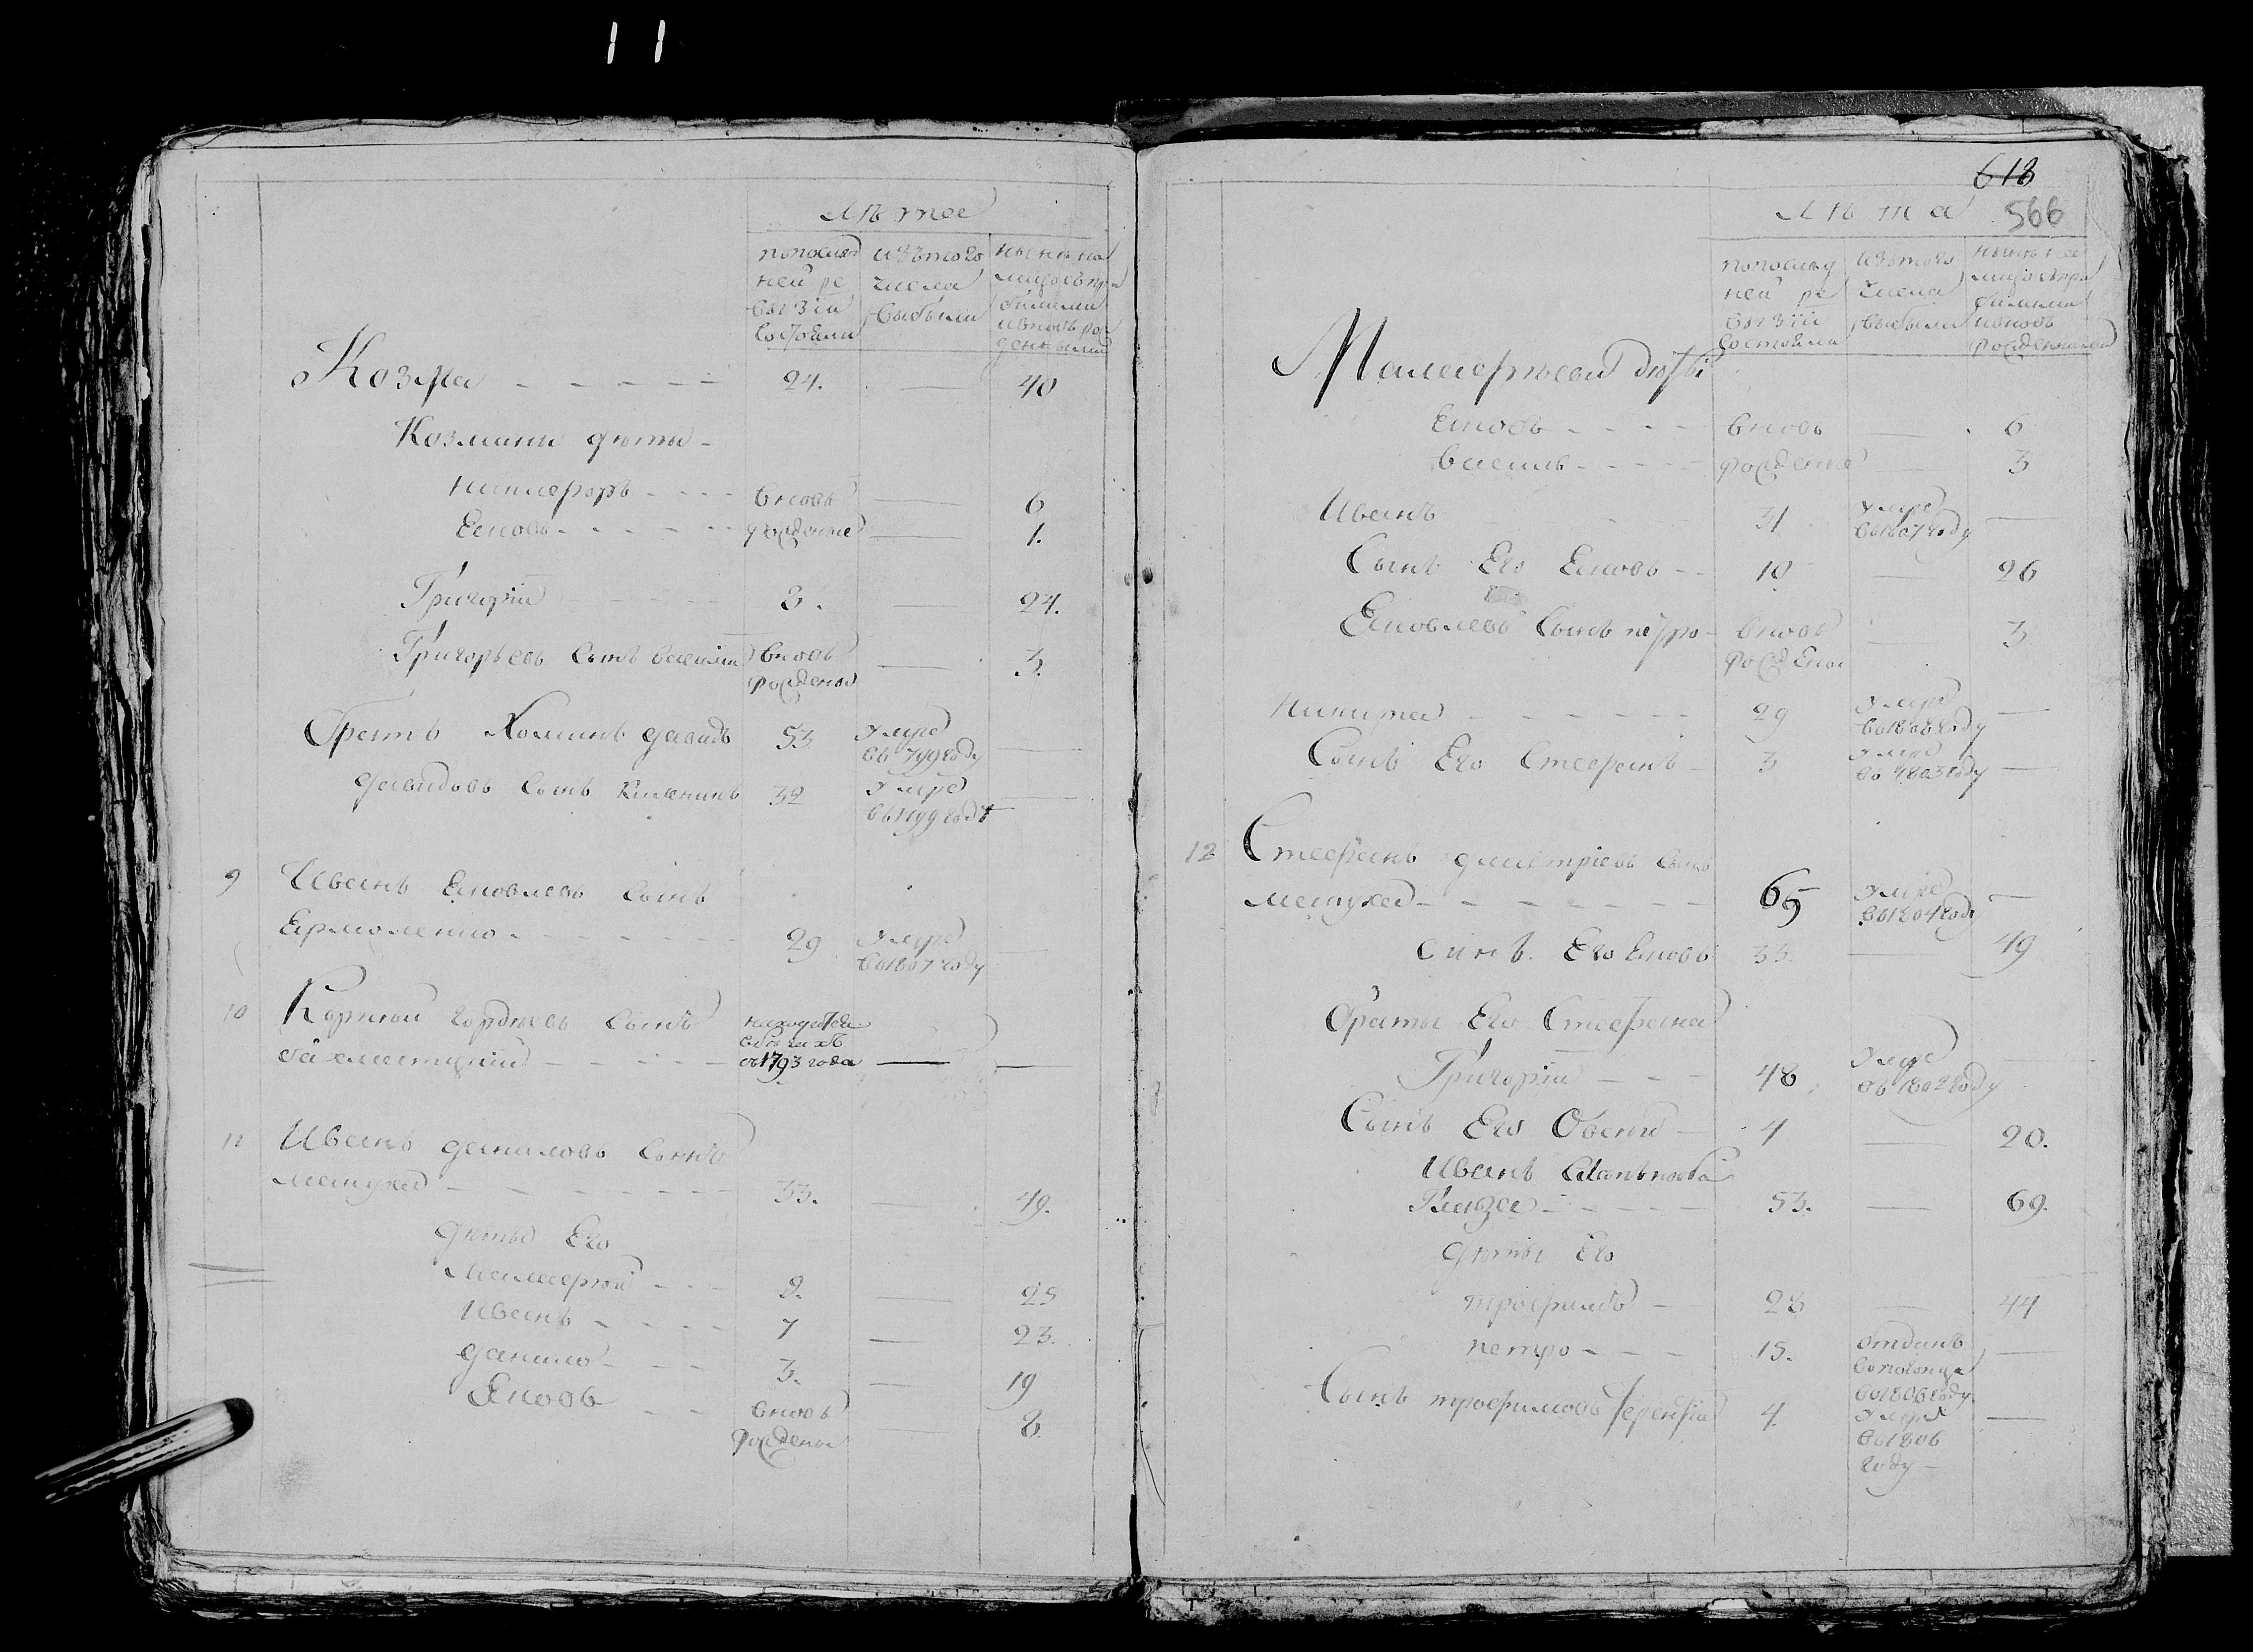 11
Лѣта
по послѣд
ней ре
визіи
состояли
изъ того
числа
выбыли
нынѣ на
лицо съ при
былыми
и вновь рож
денными
Козма - - - - - 24. — 40
Козмины дѣти -
Никифоръ - - - вновь — 6
Яковъ - - - - - рожденные — 1.
Григорій 8. — 24.
Григорьевъ сынъ Василій вновь — 3.
рожденой
Братъ Хоминъ Давидъ 53 умре —
въ 799 году
Давидовъ сынъ 32 умре —
въ 1799 году
9 Иванъ Яковлевъ сынъ
Ермоленко - - - - - 29 умре —
въ 1807 году
10 Корней Гордѣевъ сынъ находится
въ бѣгахъ
- - - - съ 1793 года — —
11 Иванъ Даниловъ сынъ
- - - - - 33. — 49.
Дѣти Его
- - - 9. — 25
Иванъ - - - - 7 — 23.
Данило - - - 3. — 19
Яковъ - - вновь — 8.
рожденой
618
566
Лѣта
по послѣд
ней ре
визіи
состояли
изъ того
числа
выбыли
нынѣ на
лицо съ при
былыми
и вновь
рожденными
дѣти
Яковъ - - - - вновь — 6
Василь - - - - рожденные — 3
Иванъ 31 умре —
въ 1807 году
Сынъ Его Яковъ - - 10 — 26
Яковлевъ сынъ Петро - вновь — 3
рожденой
Никита - - - - - 29 умре —
въ 1808 году
Сынъ Его Стефанъ - 3 умре —
въ 1803 году
12 Стефанъ Дмитріевъ сынъ
- - - - - - 65 умре —
въ 1804 году
Синъ Его Яковъ 33. — 49
Браты Его Стефана
Григорій - - - 48 умре —
въ 1802 году
Сынъ Его - 4 — 20.
Иванъ
- - - - - 53. — 69.
Дѣти Его
Трофимъ - 28 — 44
Петро - - - 15. отданъ —
въ погонца
въ 1806 году
Сынъ Трофимовъ Терентій 4. умре —
въ 1806
году -